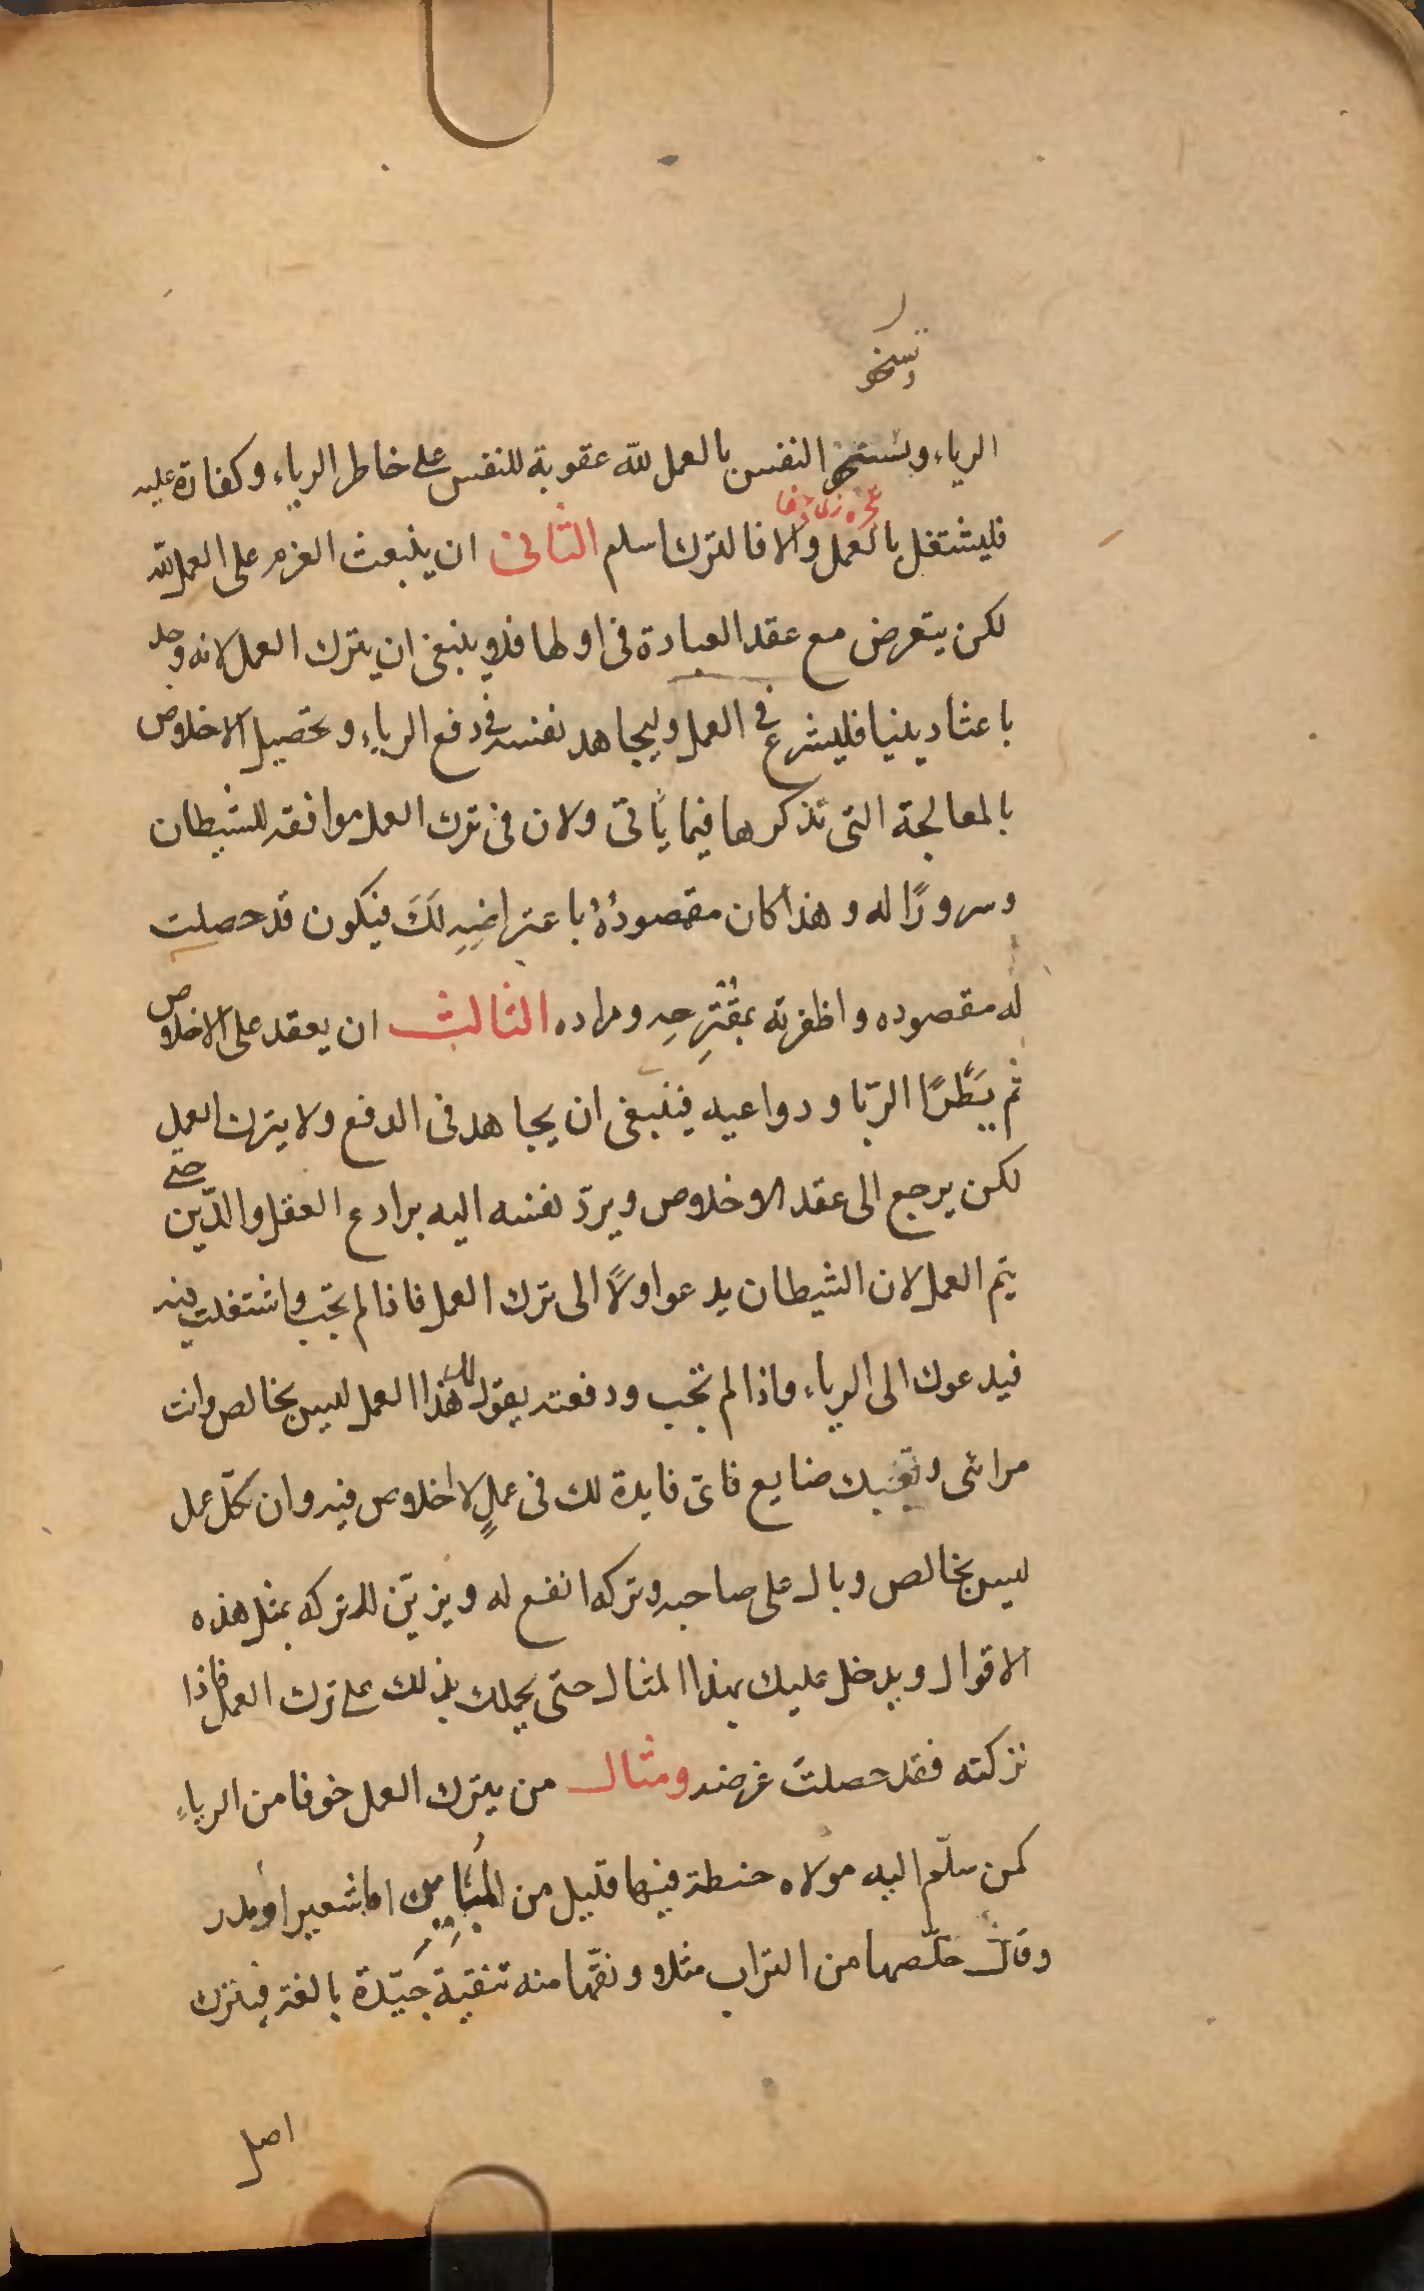 وتسخو
الرياء وتستسخو النفس بالعمل لله عقوبة للنفس على خاطر الرياء وكفارة عليه
فليشتغل بالعمل والا فالترك اسلم الثانى ان ينبعث العزم على العمل لله
لكن يتعرض مع عقد العبادة فى اولها فلا ينبغى ان يترك العمل لانه وجد
باعثا دينيا فليشرع فى العمل وليجاهد نفسه فى دفع الرياء وتحصيل الاخلاص
بالمعالجة التى نذكرها فيما يأتى ولان فى ترك العمل موافقة للشيطان
وسرورًا له وهذا كان مقصودُهُ باعتراضِهِ لَكَ فيكون قد حصلت
له مقصوده واظفرته بمقترحِه ومراده الثالث ان يعقد على الاخلاص
ثم يَطْرَأ الريا ودواعيه فينبغى ان يجاهد فى الدفع ولا يترك العمل
لكن يرجع الى عقد الاخلاص ويردّ نفسه اليه برادع العقل والدّين حتى
يتم العمل لان الشيطان يدعو اولًا الى ترك العمل فاذا لم تجب واشتغلت فيه
فيدعوك الى الرياء واذا لم تجب ودفعته يقول لك هذا العمل ليس بخالص وانت
مرائى وتعبك ضايع فاىّ فايدة لك فى عملٍ لا اخلاص فيه وان كلّ عمل
ليس بخالص وبال على صاحبه وتركه انفع له ويزيّن لك تركه بمثل هذه
الاقوال ويدخل عليك بهذا المثال حتى يحملك بذلك على ترك العمل فاذا
تركته فقد حصلتَ غرضه ومثال من يترك العمل خوفا من الرياءِ
كمن سلّم اليه مولاه حنطة فيها قليل من المُبَايِن اما شعير او مدر
وقال خلّصها من التراب مثلا ونقّها منه تنقية جيّدة بالغة فيترك
اصل